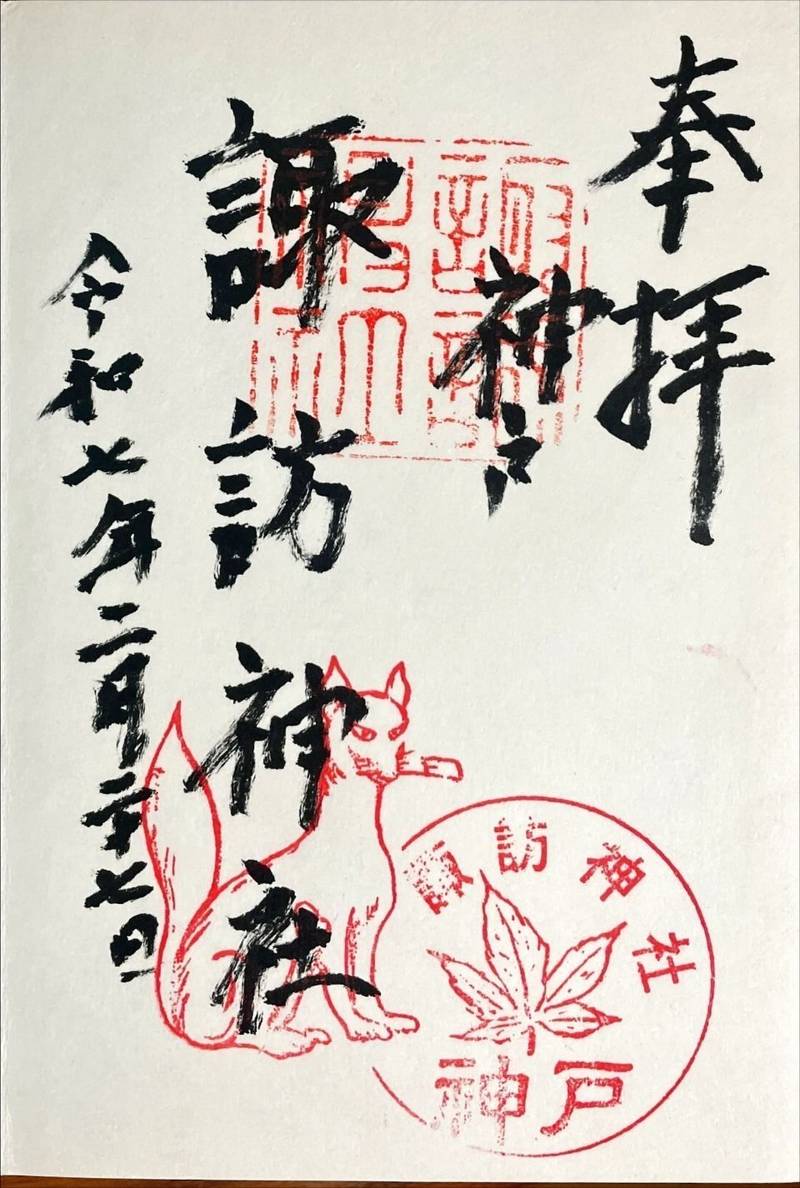 奉拝
神戸
諏訪神社
令和七年二月二十七日
諏訪神社
諏訪神社
神戸